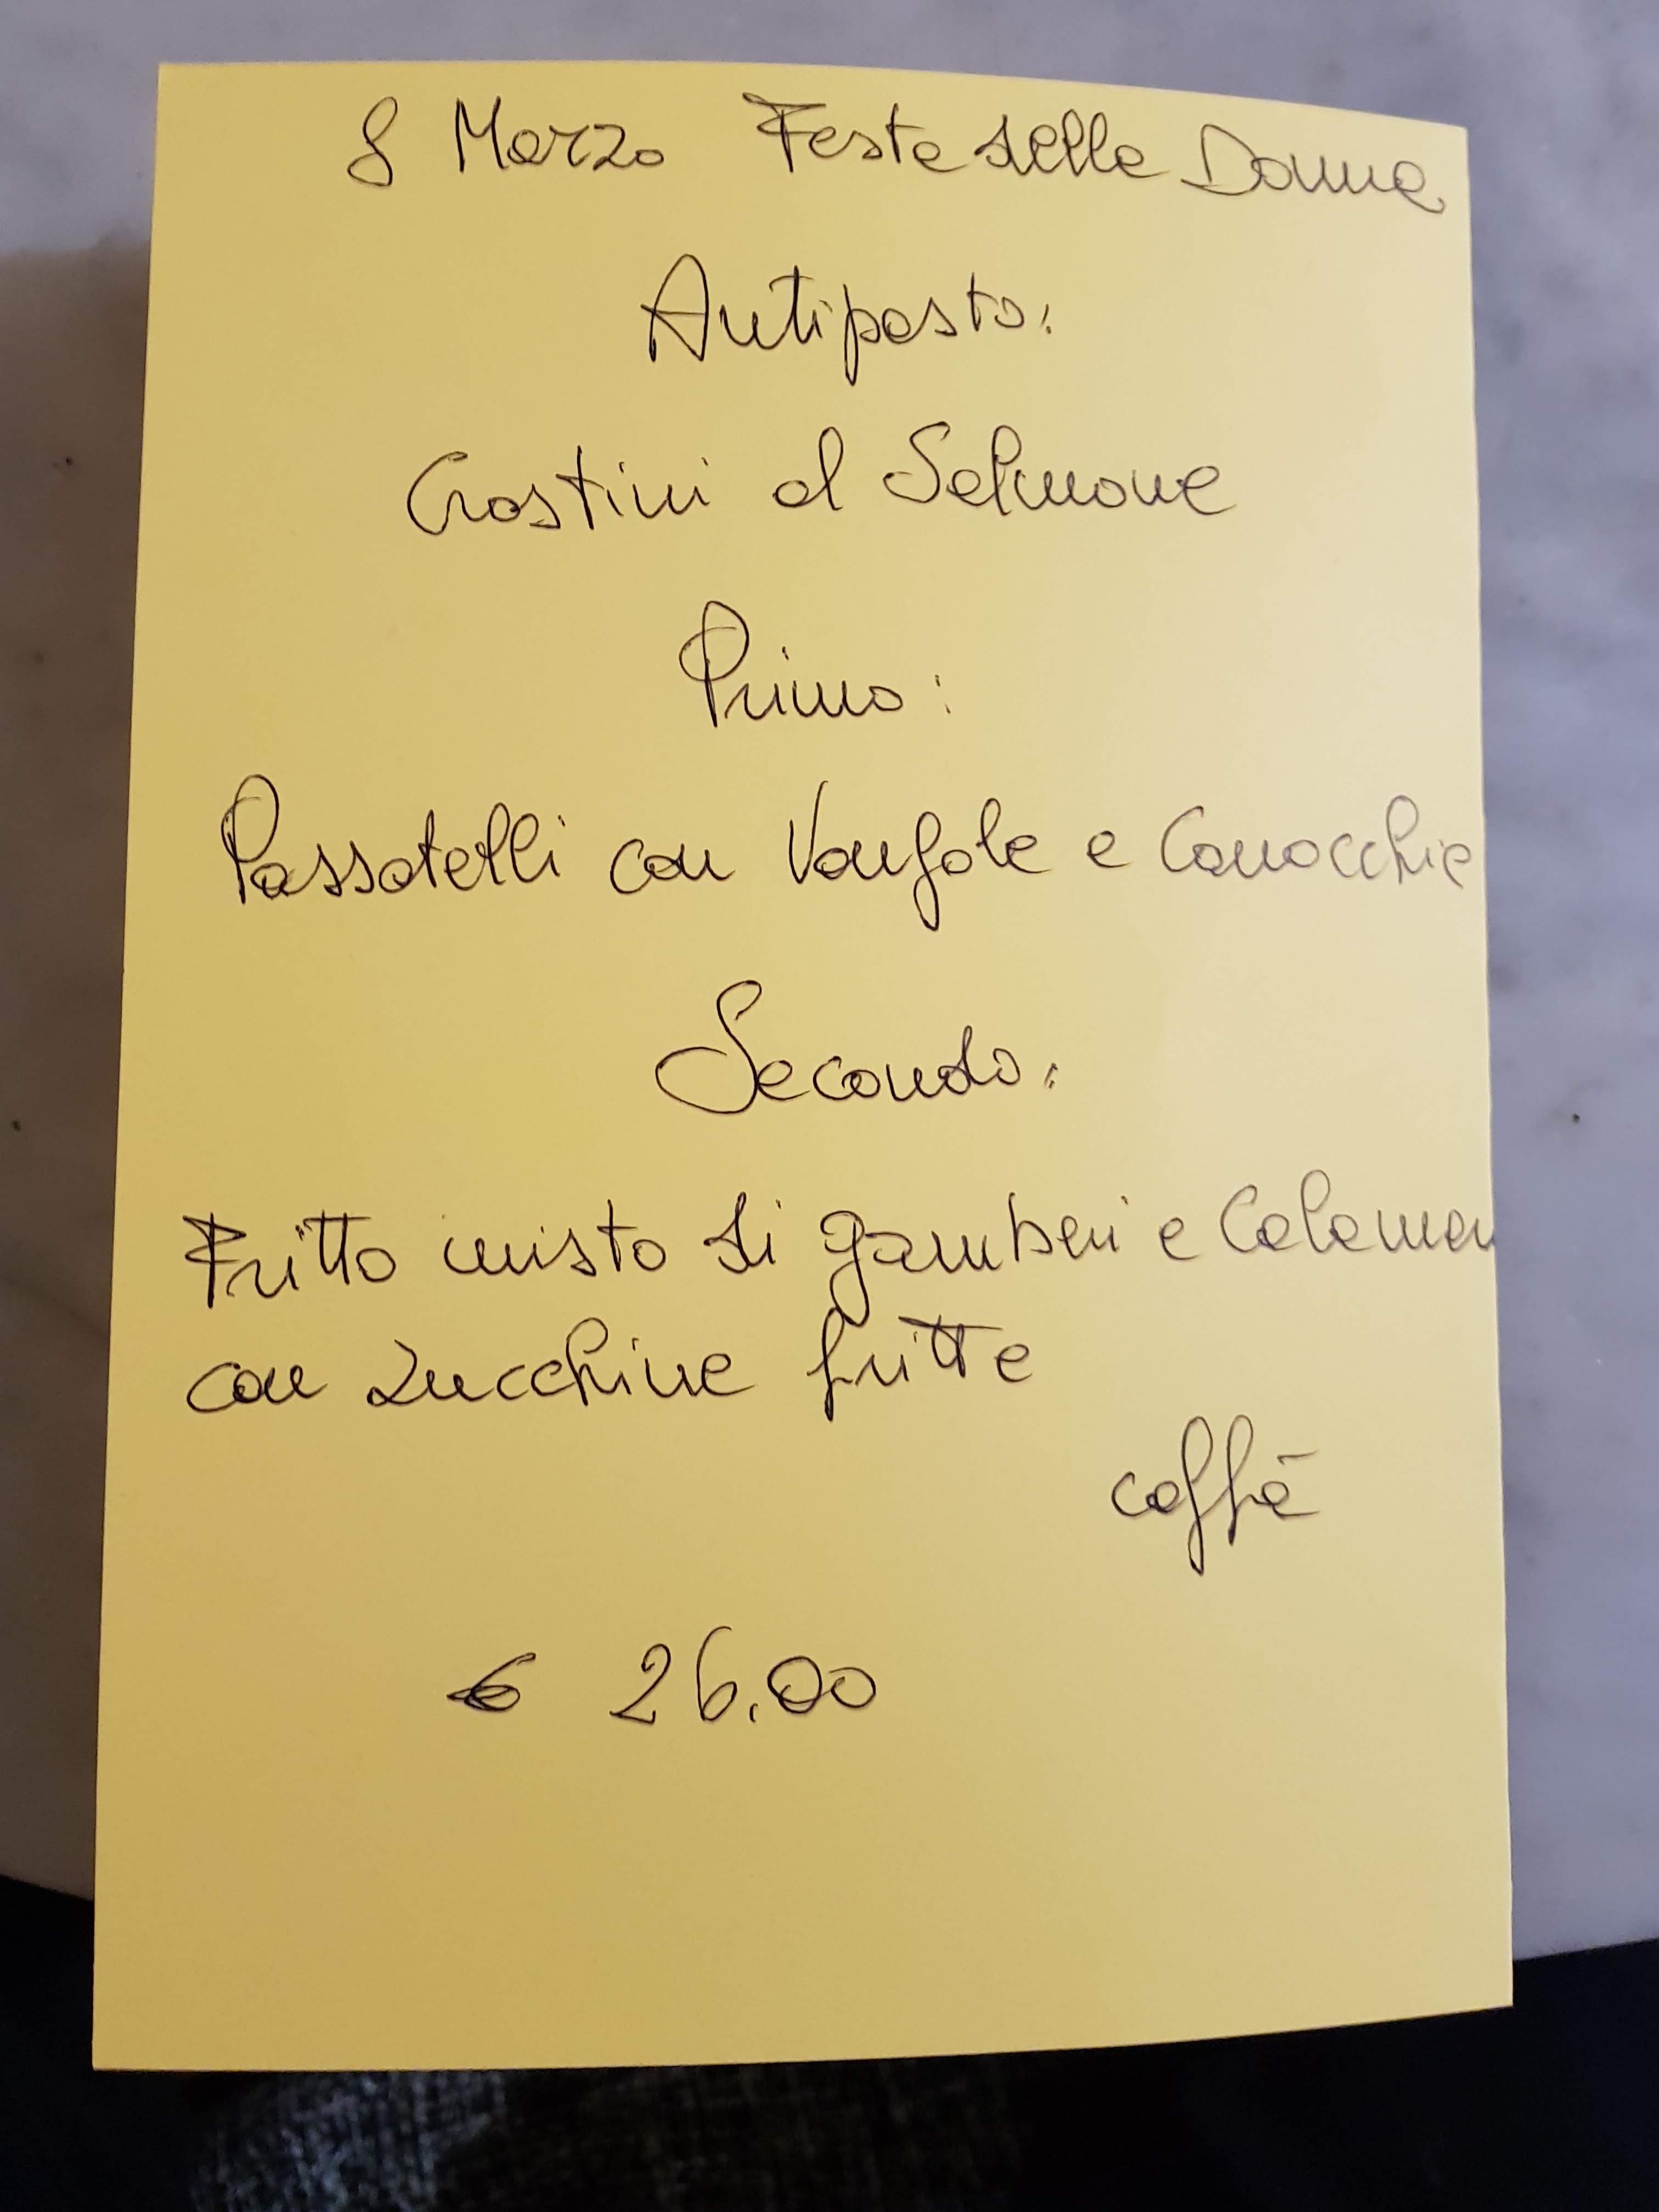 8 Marzo Festa della Donna
Antipasto:
Crostini al Salmone
Primo:
Passatelli con Vongole e Canocchie
Secondo:
Fritto misto di gamberi e Calamari
con zucchine fritte
caffè
€ 26.00